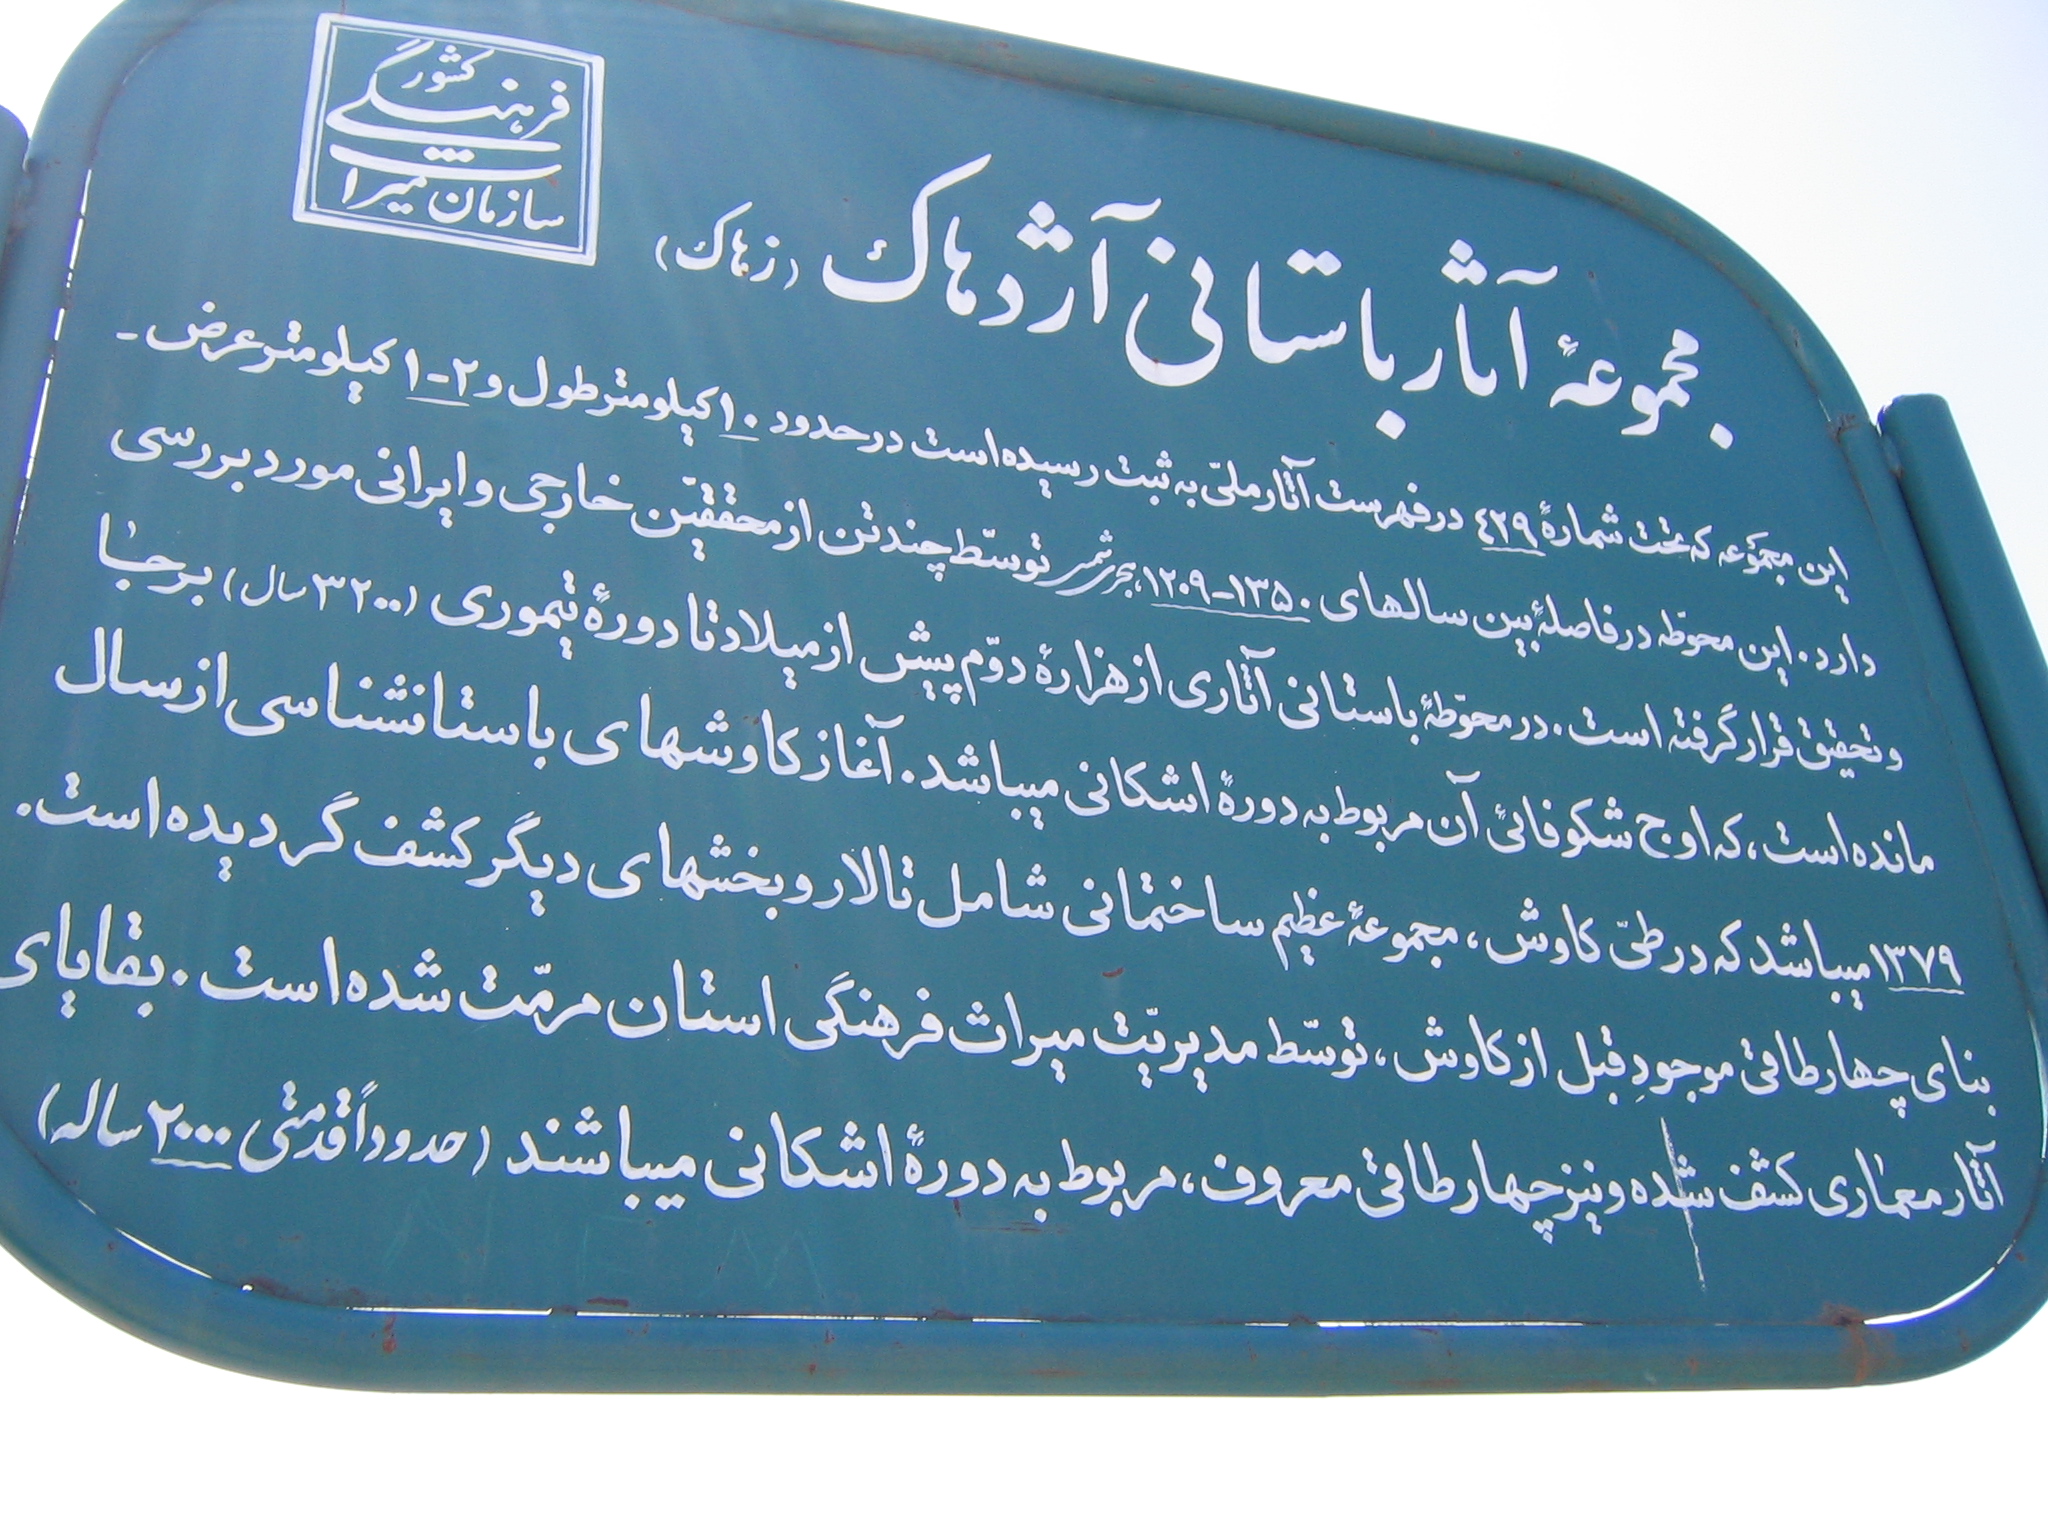 کشور
فرهنگی
سازمان میراث
مجموعهٔ آثار باستانی آژدهاک (زهاک)
این مجموعه که تحت شمارهٔ ۴۲۹ در فهرست آثار ملّی به ثبت رسیده است در حدود ۱۰ کیلومتر طول و ۲-۱ کیلومتر عرض -
دارد. این محوّطه در فاصلهٔ بین سالهای ۱۳۵۰-۱۲۰۹ هجری شمسی توسّط چند تن از محققیّن خارجی و ایرانی مورد بررسی
و تحقیق قرار گرفته است. در محوّطهٔ باستانی آثاری از هزارهٔ دوّم پیش از میلاد تا دورهٔ تیموری (۳۲۰۰ سال) برجا
مانده است، که اوج شکوفائیٔ آن مربوط به دورهٔ اشکانی میباشد. آغاز کاوشهای باستانشناسی از سال
۱۳۷۹ میباشد که در طیّ کاوش، مجموعهٔ عظیم ساختمانی شامل تالار و بخشهای دیگر کشف گردیده است.
بنای چهارطاقی موجودِ قبل از کاوش، توسّط مدیریّت میراث فرهنگی استان مرمّت شده است. بقایای
آثار معماری کشف شده و نیز چهارطاقی معروف، مربوط به دورهٔ اشکانی میباشند (حدوداً قدمتی ۲۰۰۰ ساله)